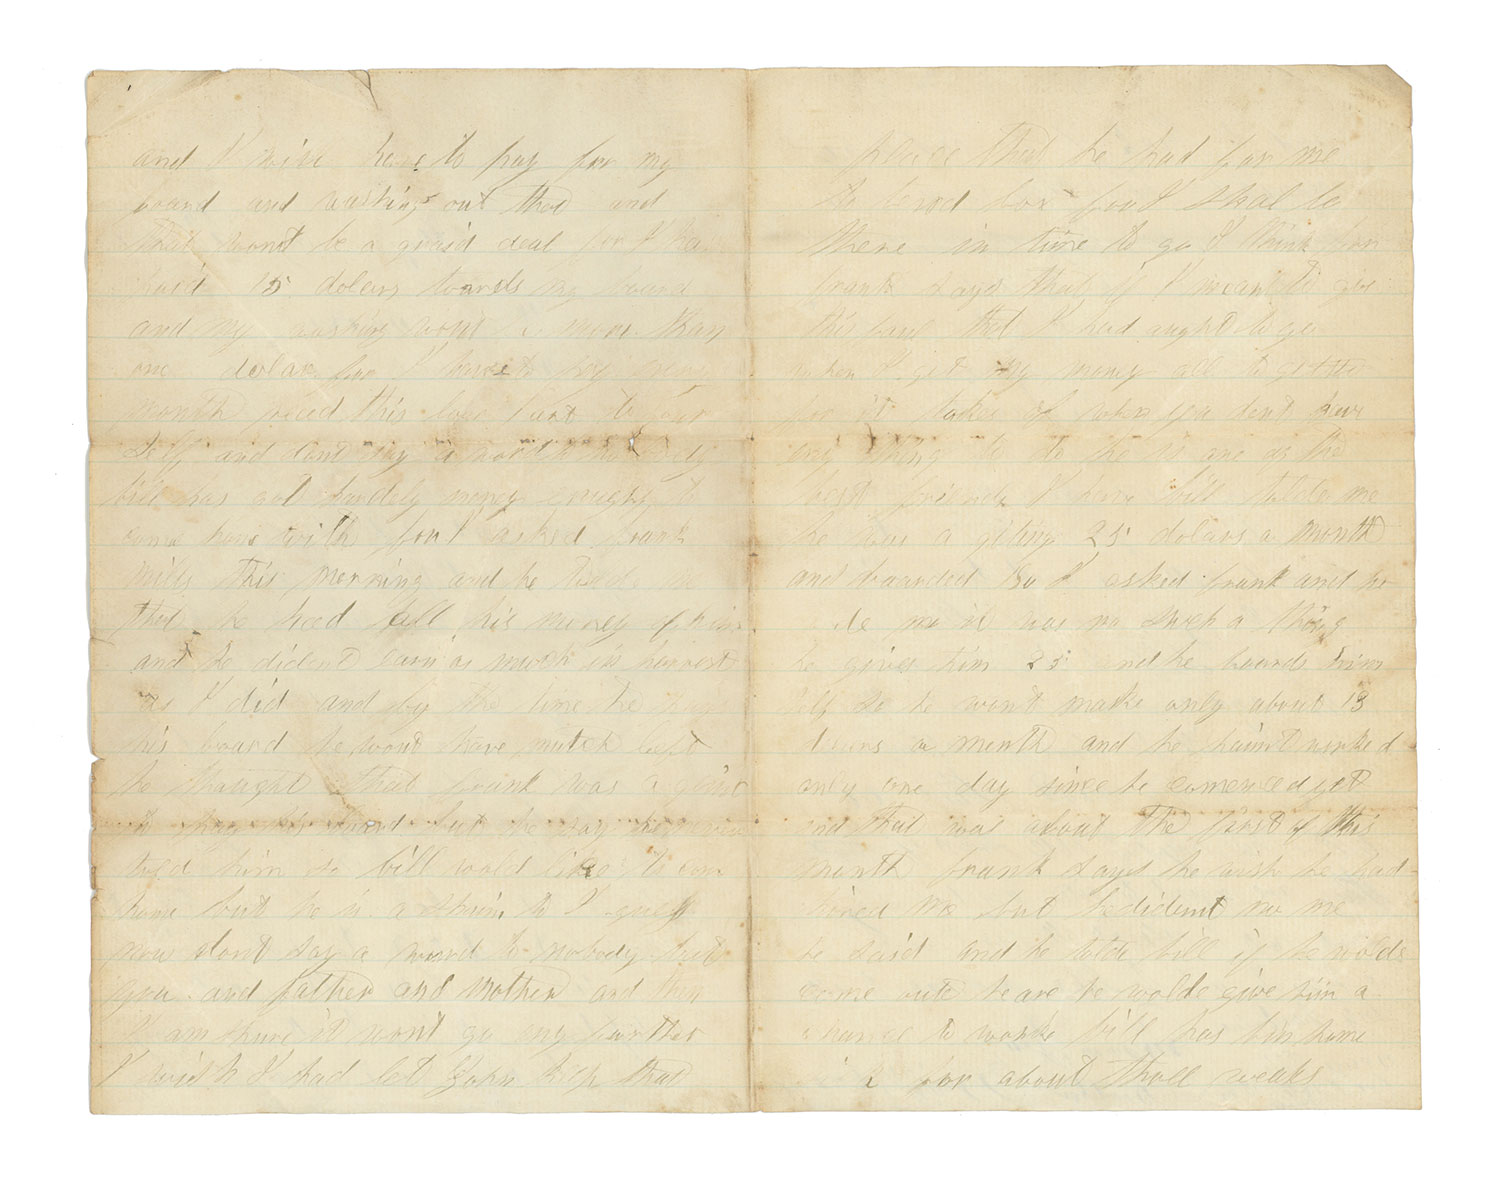 and I will have to pay for my
board and washing out thos and
that wont be a graid deal for I have
paid 15 dolars towards my board
and my washing wont be more than
one dolar for I have to
month read this over
self and dont say a word to nobody
bill has got hardely money enought to
come home with for I asked frank
mills this morning and he tolde me
that he head all his money of him
and he dident earn as much in harvest
as I did and by the time he pays
his board he wont have mutch left
he thaught that frank was a goin
to pay his board but he say he never
toled him so bill wold like to com
home but he is ashaim to I guess
now dont say a word to nobody but
you and father and Mother and then
I am shure it wont go eny farther
I wish I had let John keep that
place that he had for me
to bord for for I shal be
there in time to go I think for
frank says that if I want to give
this up that I had aught to go
when I get my money all to gether
for it takes of when you dont have
eny thing to do he is one of the
best friends I have bill tolde me
he was a giting 25 dolars a month
and boarded So I asked frank and he
tolde me it was no such a thing
he gives him 25 and he boards him
self so he wont make only about 13
dolars a month and he haint worked
only one day since he comenced yet
and that was about the first of this
month frank says he wish he had
hired me but he dident no me
he said and he tolde bill if he wolde
come oute heare he wolde give him a
chance to worke bill has bin home
sick for about thall weaks